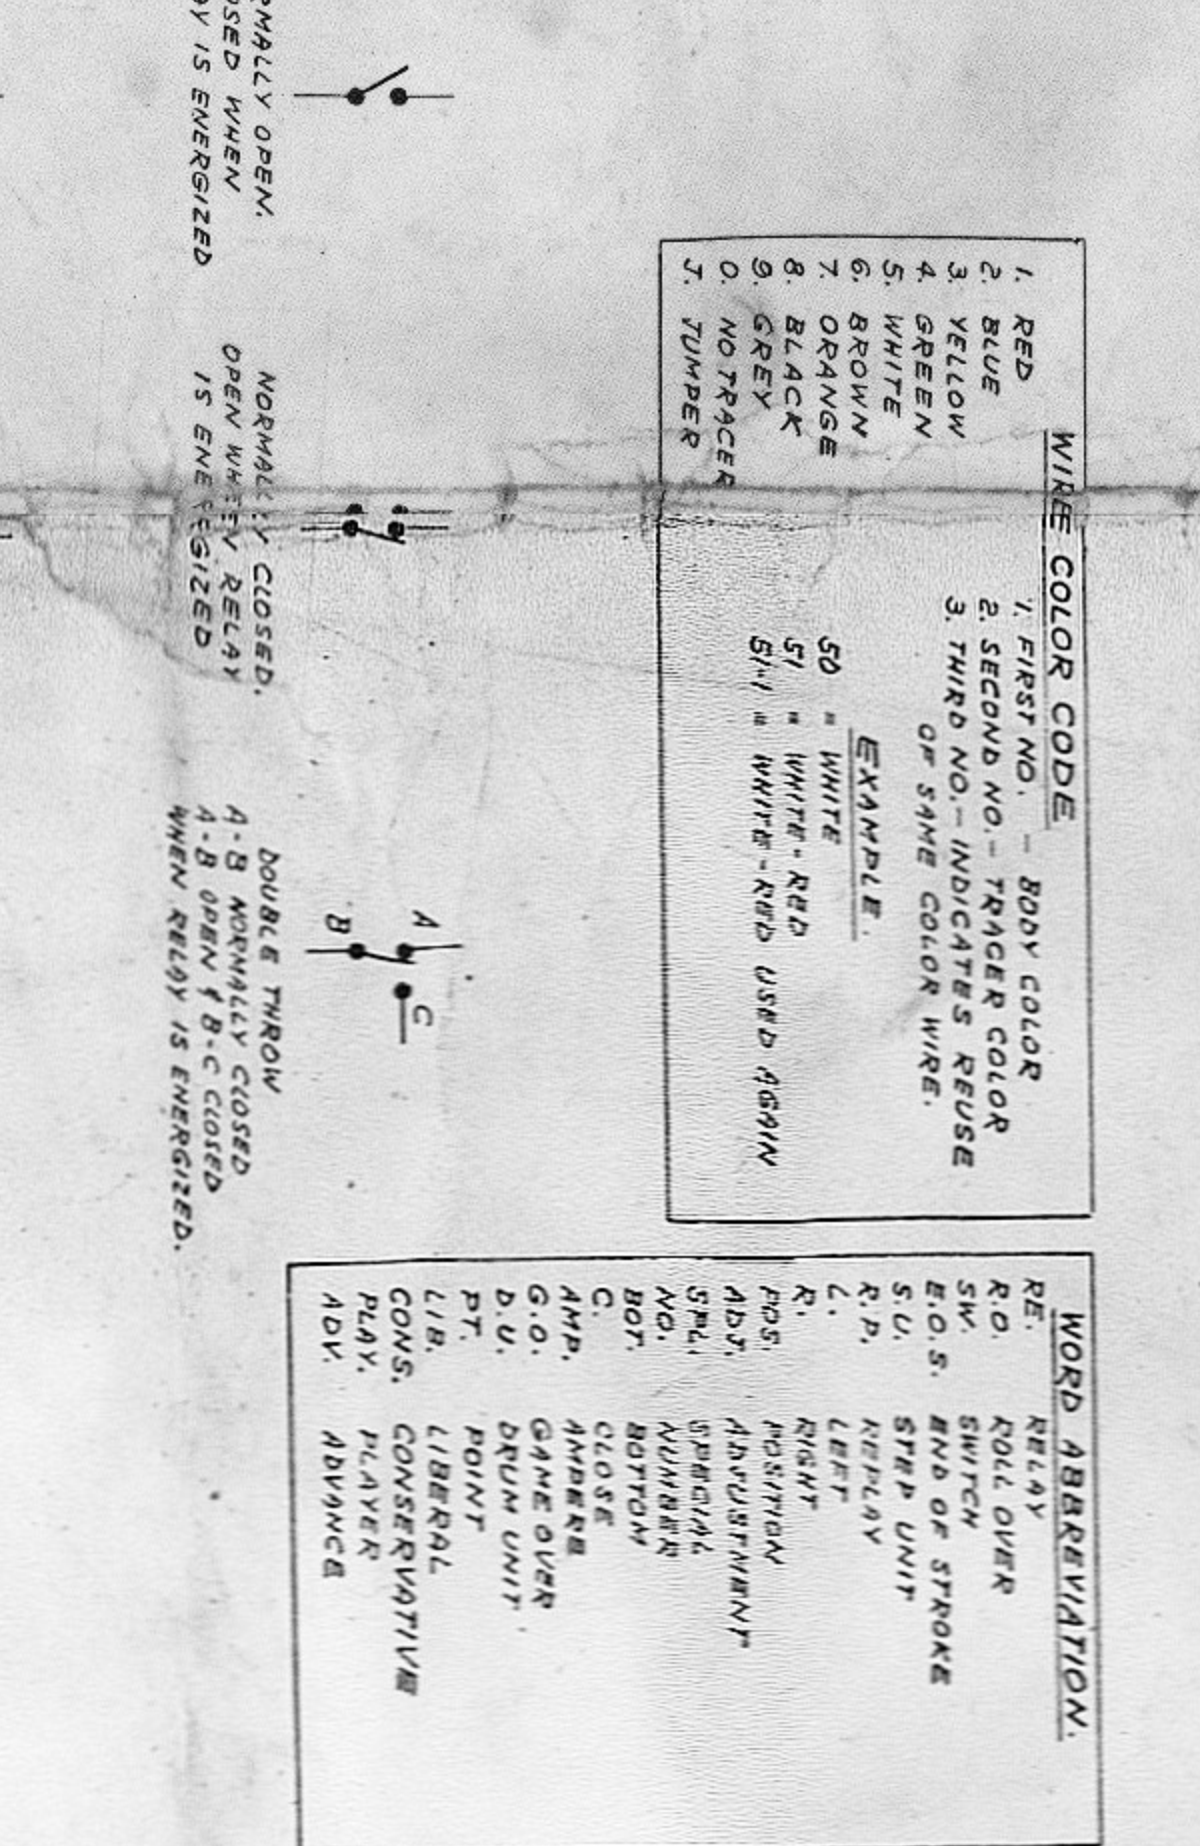 WIRE COLOR CODE
1. RED
2. BLUE
3. YELLOW
4. GREEN
5. WHITE
6. BROWN
7. ORANGE
8. BLACK
9. GREY
0. NO TRACER
J. JUMPER
1. FIRST NO. — BODY COLOR
2. SECOND NO. — TRACER COLOR
3. THIRD NO. — INDICATES REUSE
OF SAME COLOR WIRE.
EXAMPLE.
50 = WHITE
51 = WHITE-RED
51-1 = WHITE-RED USED AGAIN
WORD ABBREVIATION.
RE. RELAY
R.O. ROLL OVER
SW. SWITCH
E.O.S. END OF STROKE
S.U. STEP UNIT
R.P. REPLAY
L. LEFT
R. RIGHT
POS. POSITION
ADJ. ADJUSTMENT
SPL. SPECIAL
NO. NUMBER
BOT. BOTTOM
C. CLOSE
AMP. AMPERE
G.O. GAME OVER
D.U. DRUM UNIT
PT. POINT
LIB. LIBERAL
CONS. CONSERVATIVE
PLAY. PLAYER
ADV. ADVANCE
MALLY OPEN.
SED WHEN
Y IS ENERGIZED
NORMALLY CLOSED.
OPEN WHEN RELAY
IS ENERGIZED
A
C
B
DOUBLE THROW
A-B NORMALLY CLOSED
A-B OPEN & B-C CLOSED
WHEN RELAY IS ENERGIZED.